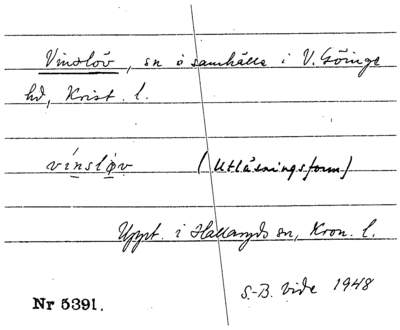 Vinslöv, sn o samhälle i V. Göinge
hd, Krist. l.
vínsløv (Utlåningsform)
Uppt. i Hallaryds sn, Kron. l.
S.-B. Vide 1948
Nr 5391.